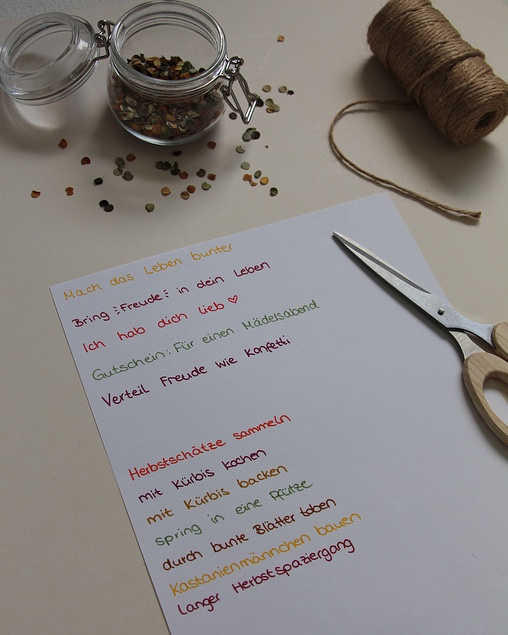 Mach das Leben bunter
Bring Freude in dein Leben
Ich hab dich lieb ♡
Gutschein: Für einen Mädelsabend
Verteil Freude wie Konfetti
Herbstschätze sammeln
mit Kürbis kochen
mit Kürbis backen
spring in eine Pfütze
durch bunte Blätter toben
Kastanienmännchen bauen
langer Herbstspaziergang